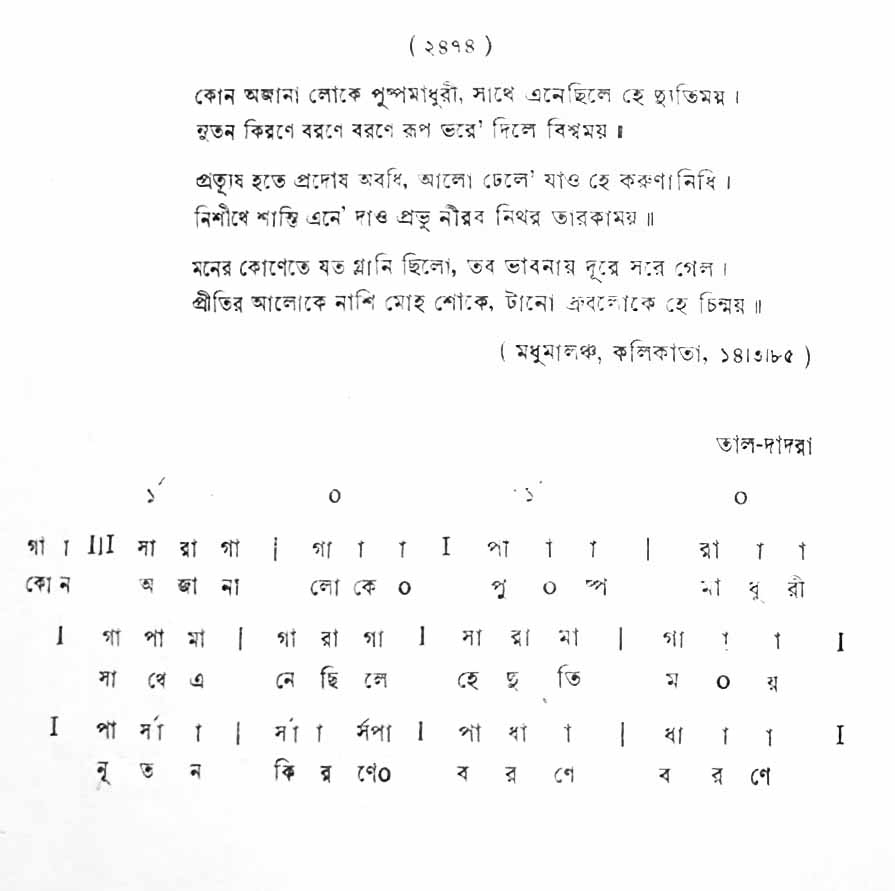 ( ২৪৭৪ )
কোন অজানা লোকে পুষ্পমাধুরী, সাথে এনেছিলে হে দ্যুতিময় ।
নূতন কিরণে বরণে বরণে রূপ ভরে' দিলে বিশ্বময় ॥
প্রত্যূষ হতে প্রদোষ অবধি, আলো ঢেলে' যাও হে করুণানিধি ।
নিশীথে শান্তি এনে' দাও প্রভু নীরব নিথর তারকাময় ॥
মনের কোণেতে যত গ্লানি ছিলো, তব ভাবনায় দূরে সরে গেল ।
প্রীতির আলোকে নাশি মোহ শোকে, টানো ধ্রুবলোকে হে চিন্ময় ॥
( মধুমালঞ্চ, কলিকাতা, ১৪।৩।৮৫ )
তাল-দাদরা
১´ ০ ১´ ০
গা া II সা রা গা | গা া া I পা া া | রা া া
কো ন অ জা না লো কে ০ পু ০ ষ্প মা ধু রী
I গা পা মা | গা রা গা I সা রা মা | গা া া I
সা থে এ নে ছি লে হে দ্যু তি ম ০ য়
I পা র্সা া | র্সা া র্সপা I পা ধা া | ধা া া I
নূ ত ন কি র ণে০ ব র ণে ব র ণে